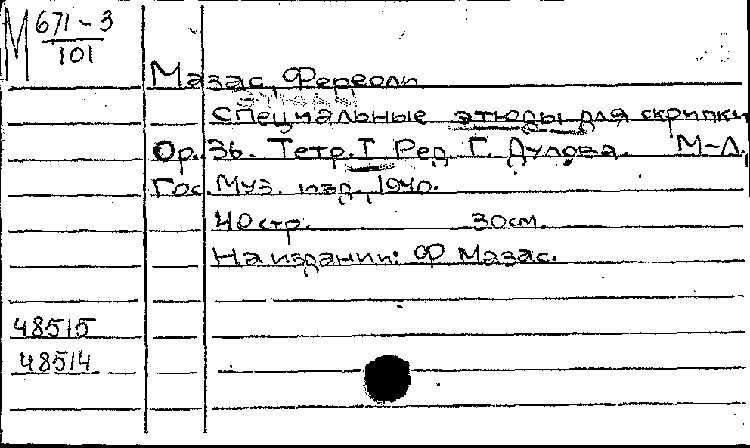 М 671-3
101
Мазас, Фереоль
Специальные этюды для скрипки
Ор. 36. Тетр. I Ред. Г. Дулова. М-Л.,
Гос. Муз. изд., 1940.
40 стр. 30 см.
На издании: Ф Мазас.
48515
48514